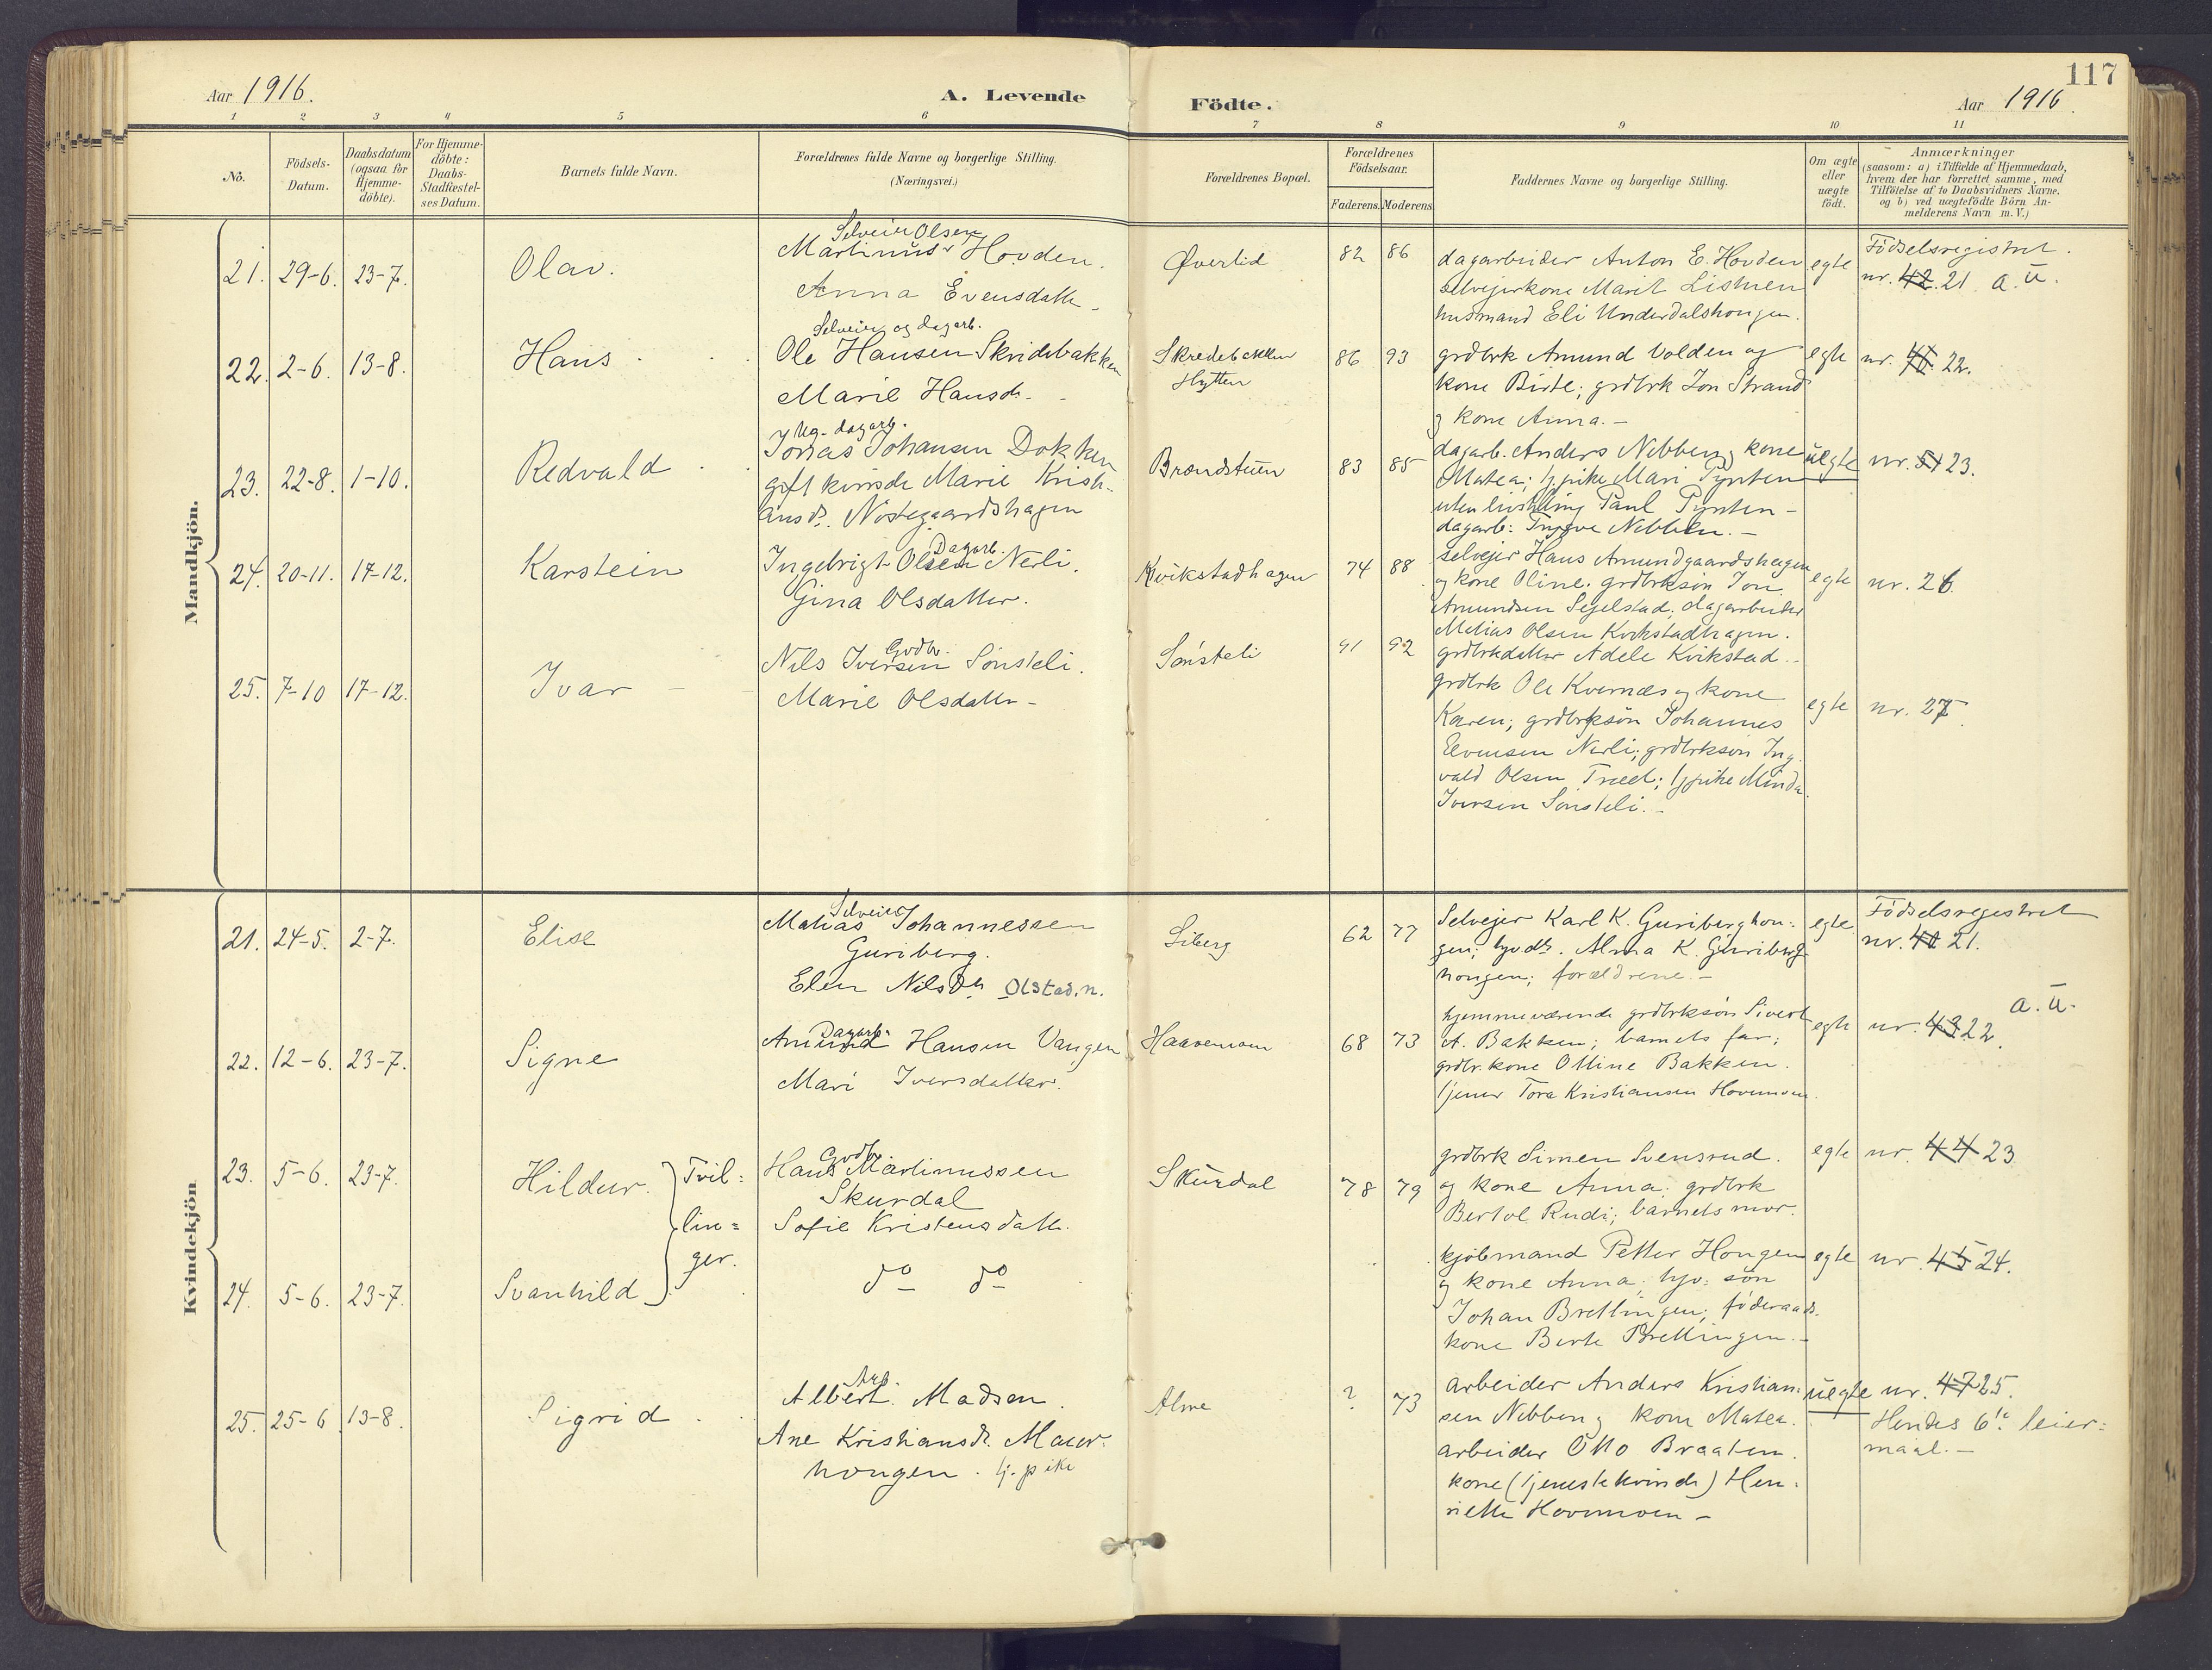 117
Aar 1916.
A. Levende Födte.
Aar 1916.
1 2 3 4 5 6 7 8 9 10 11
No.
Födsels-Datum.
Daabsdatum (ogsaa for Hjemme-döbte).
For Hjemme-döbte: Daabs-Stadfæstel-ses Datum.
Barnets fulde Navn.
Forældrenes fulde Navne og borgerlige Stilling.
(Næringsvei.)
Forældrenes Bopæl.
Forældrenes Födselsaar.
Faderens. Moderens.
Faddernes Navne og borgerlige Stilling.
Om ægte eller uægte födt.
Anmærkninger
(saasom: a) i Tilfælde af Hjemmedaab,
hvem der har forrettet samme, med
Tilföielse af to Daabsvidners Navne.
og b) ved uægtefödte Börn An-
melderens Navn m. V.)
Mandkjön.
21. 29-6. 23-7. Olav.
Selveier Olsen
Martinus Hovden.
Anna Evensdatte -
Øverlid 82 86
dagarbeider Anton E. Hovden
selveierkone Marit Listuen
husmand Eli Underdalshongen.
egte
Födselsregistret.
nr. 42. 21 a. u.
22. 2-6. 13-8. Hans.
Selveier og dagarb.
Ole Hansen Skridubakken
Marie Hansdr. -
Skredebakken
Hytten
86 93
grdbrk Amund Volden og
kone Birte; grdbrk Jon Strand
og kone Anna. -
egte nr. 41 22.
23. 22-8. 1-10. Redvald
Ug. dagarb.
Jonas Johansen Dokken
gift kvinde Marie Kristi-
ansdr. Nostegaardshagen
Brændstuen 83 85
dagarb. Anders Nebben og kone
Matea; tj.pike Mari Pynten
uten livstilling Paul Pynten -
dagarb. Trygve Nebben. -
uegte nr. 51 23.
24. 20-11. 17-12. Karstein
Dagarb.
Ingebrigt Olsen Nerli.
Gina Olsdatter.
Kvikstadhagen 74 88
selvejer Hans Amundgaardshagen
og kone Oline. grdbrksøn Jon
Amundsen Segelstad; dagarbeider
Melias Olsen Kvikstadhagen.
grdbrkdatter Adele Kvikstad. -
egte nr. 26.
25. 7-10 17-12. Ivar -
Grdbr.
Nils Iversen Sønsteli.
Marie Olsdatter -
Sønsteli 91 92
grdbrk Ole Kvernæs og kone
Karen; grdbrksøn Johannes
Evensen Nerli; grdbrksøn Ing-
vald Olsen Træet; tjpike Minda
Iversen Sønsteli. -
egte nr. 27.
Kvindekjön
21. 24-5. 2-7. Elise
Selveier
Matias Johannessen
Guriberg.
Elen Nilsdtr Olstad. n.
Liberg 62 77
Selvejer Karl K. Guriberghon-
gen; gvdtr. Alma K. Guriberg-
hongen; forældrene. -
egte.
Födselsregistret
nr. 41 21.
a. u.
22. 12-6. 23-7. Signe
Dagarb.
Amund Hansen Vangen
Mari Iversdatter.
Haavemoen 68 73
hjemmeværende grdbrksøn Sivert
A. Bakken; barnets far;
grdbr.kone Olline Bakken.
tjener Tora Kristiansen Hovemoen.
egte nr. 43 22.
23. 5-6. 23-7. Hildur. Tvil=
lin=
ger.
Grdbr.
Hans Martinussen
Skurdal
Sofie Kristensdatte.
Skurdal 78 79
grdbrk Simen Svensrud.
og kone Anna; grdbrk
Bertol Rudi; barnets mor.
egte nr. 44 23
24. 5-6. 23-7. Svanhild
do do
kjøbmand Petter Hongen
og kone Anna; tjv. søn
Johan Brettingen; føderaads-
kone Berte Brettingen. -
egte nr. 45 24.
25. 25-6. 13-8. Sigrid
Arb.
Albert Madsen.
Ane Kristiansdr. Maur-
hongen. tj.pike
Alme ? 73
arbeider Anders Kristian-
sen Nebben og kone Matea.
arbeider Otto Braaten.
kone (tjenestekvinde) Hen-
riette Hovemoen -
uegte nr. 47 25.
Hendes 6te leier=
maal. -